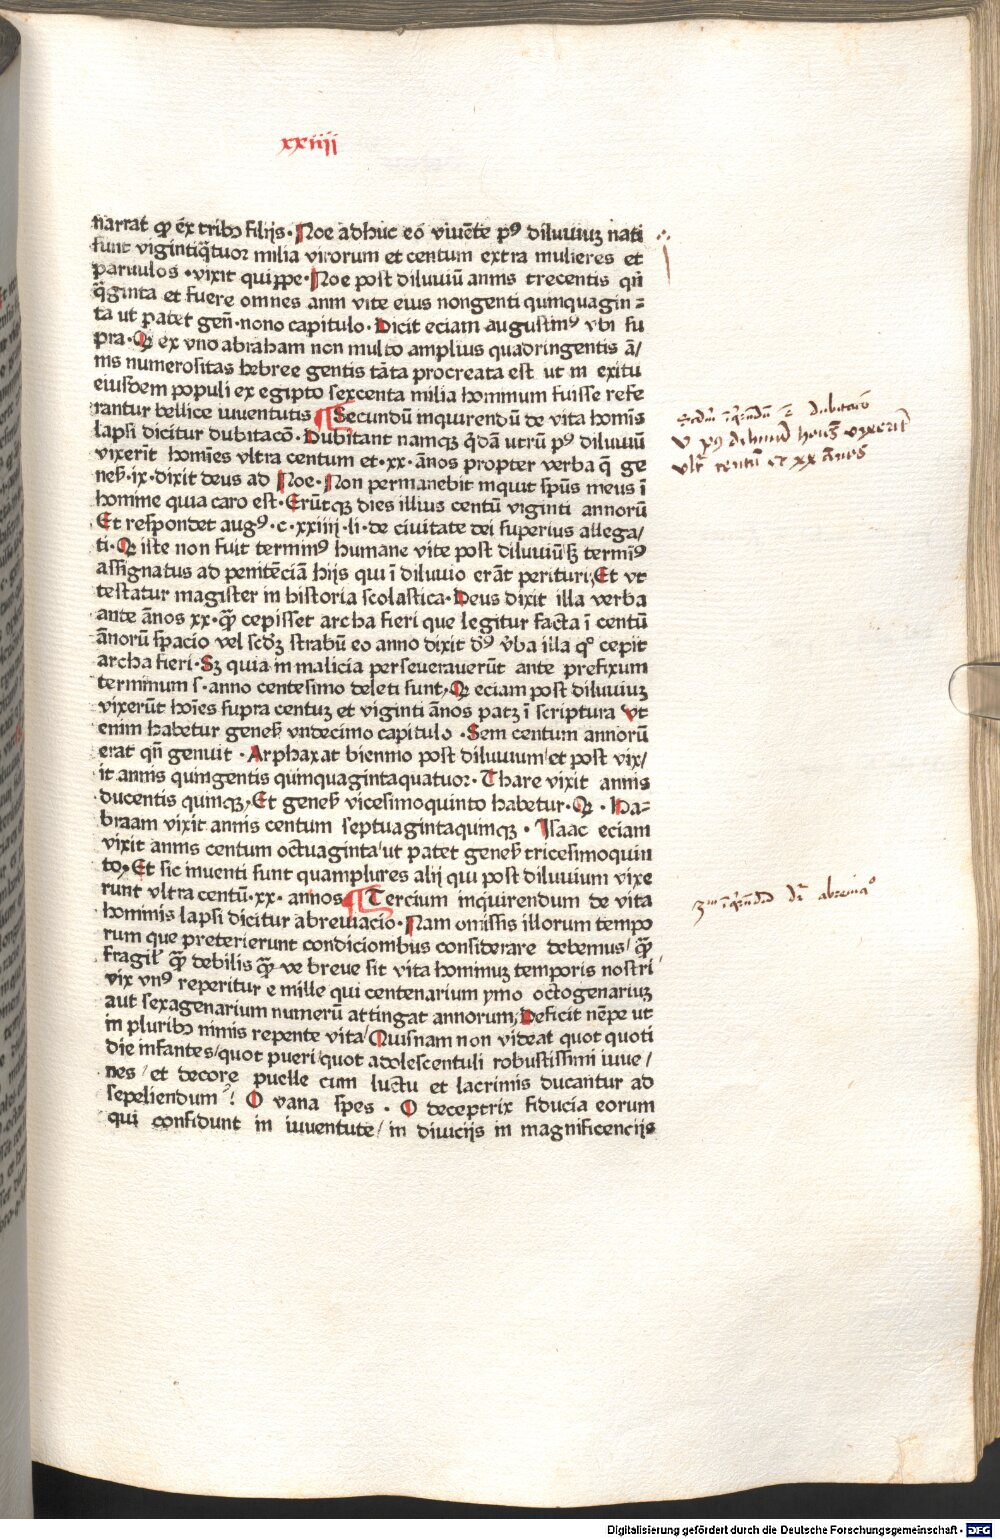 xxiiij
narrat ꝙ ex tribꝫ filijs. Noe adhuc eo viuẽte pꝰ diluuiuꝫ nati
sunt vigintiq̃tuor milia virorum et centum extra mulieres et
paruulos. vixit quippe. Noe post diluuiũ annis trecentis qñ
q̃ginta et fuere omnes anni vite eius nongenti quinquagin=
ta ut patet gen̄. nono capitulo. Dicit eciam augustinꝰ vbi su
pra. Ꝙ ex vno abraham non multo amplius quadringentis ã/
nis numerositas hebree gentis tãta procreata est ut in exitu
eiusdem populi ex egipto sexcenta milia hominum fuisse refe
rantur bellice iuuentutis ¶ Secundũ inquirendũ de vita homĩs
lapsi dicitur dubitacõ. Dubitant namqꝫ q̃dã utrũ pꝰ diluuiũ
vixerit homĩes vltra centum et. xx. ãnos propter verba q̃ ge
neß. ix. dixit deus ad Noe. Non permanebit inquit spũs meus ĩ
homine quia caro est. Erũtqꝫ dies illius centũ viginti annorũ
Et respondet augꝰ. c. xxiiij. li. de ciuitate dei superius allega/
ti. Ꝙ iste non fuit terminꝰ humane vite post diluuiũ sꝫ termĩꝰ
assignatus ad penitẽciã hijs qui ĩ diluuio erãt perituri, Et vt
testatur magister in historia scolastica. Deus dixit illa verba
ante ãnos xx. qꝫ̃ cepisset archa fieri que legitur facta ĩ centũ
ãnorũ spacio vel scdꝫ strabũ eo anno dixit dꝰ v̓ba illa qº cepit
archa fieri. Sꝫ quia in malicia perseuerauerũt ante prefixum
terminum s. anno centesimo deleti sunt, Ꝙ eciam post diluuiuꝫ
vixerũt hoĩes supra centuꝫ et viginti ãnos patꝫ ĩ scriptura Vt
enim habetur geneß vndecimo capitulo. Sem centum annorũ
erat qñ genuit. Arphaxat biennio post diluuium et post vix/
it annis quingentis quinquagintaquatuor. Thare vixit annis
ducentis quinqꝫ, Et geneß vicesimoquinto habetur. Ꝙ. Ha=
braam vixit annis centum septuagintaquinqꝫ. Isaac eciam
vixit annis centum octuaginta ut patet geneß tricesimoquin
to, Et sic inuenti sunt quamplures alij qui post diluuium vixe
runt vltra centũ. xx. annos ¶ Tercium inquirendum de vita
hominis lapsi dicitur abreuiacio. Nam omissis illorum tempo
rum que preterierunt condicionibus considerare debemus/ qꝫ̃
fragil̓ qꝫ̃ debilis qꝫ̃ ve breue sit vita hominuꝫ temporis nostri
vix vnꝰ reperitur e mille qui centenarium ymo octogenariuꝫ
aut sexagenarium numerũ attingat annorum, Deficit nẽpe ut
in pluribꝫ nimis repente vita/ Quisnam non videat quot quoti
die infantes/ quot pueri/ quot adolescentuli robustissimi iuue/
nes/ et decore puelle cum luctu et lacrimis ducantur ad
sepeliendum? O vana spes. O deceptrix fiducia eorum
qui confidunt in iuuentute/ in diuicijs in magnificencijs
Scdm̃ īq̃rendũ dr̃ dubitacõ
v̓ pꝰ diluuiũ hoĩes vixerit
vlt̃ centũ et xx ãnos
3m īq̃rendũ dr̃ abreuiaº
Digitalisierung gefördert durch die Deutsche Forschungsgemeinschaft - DFG